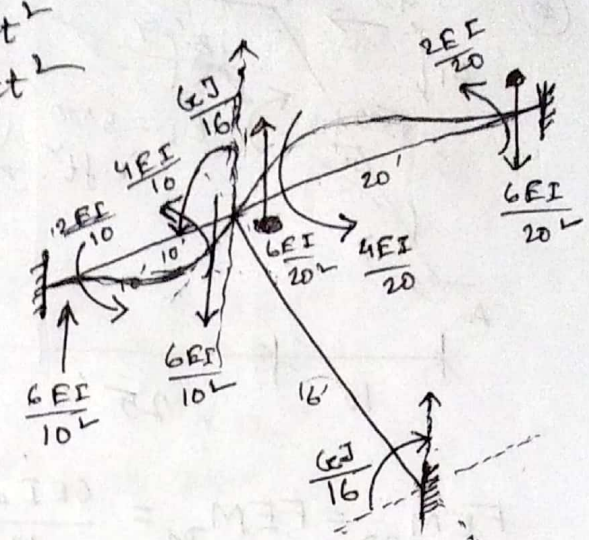 t²
t²
GJ/16
2EI/20
4EI/10
2EI/10
20'
6EI/20²
10'
10'
6EI/20²
4EI/20
6EI/10²
6EI/10²
16'
GJ/16